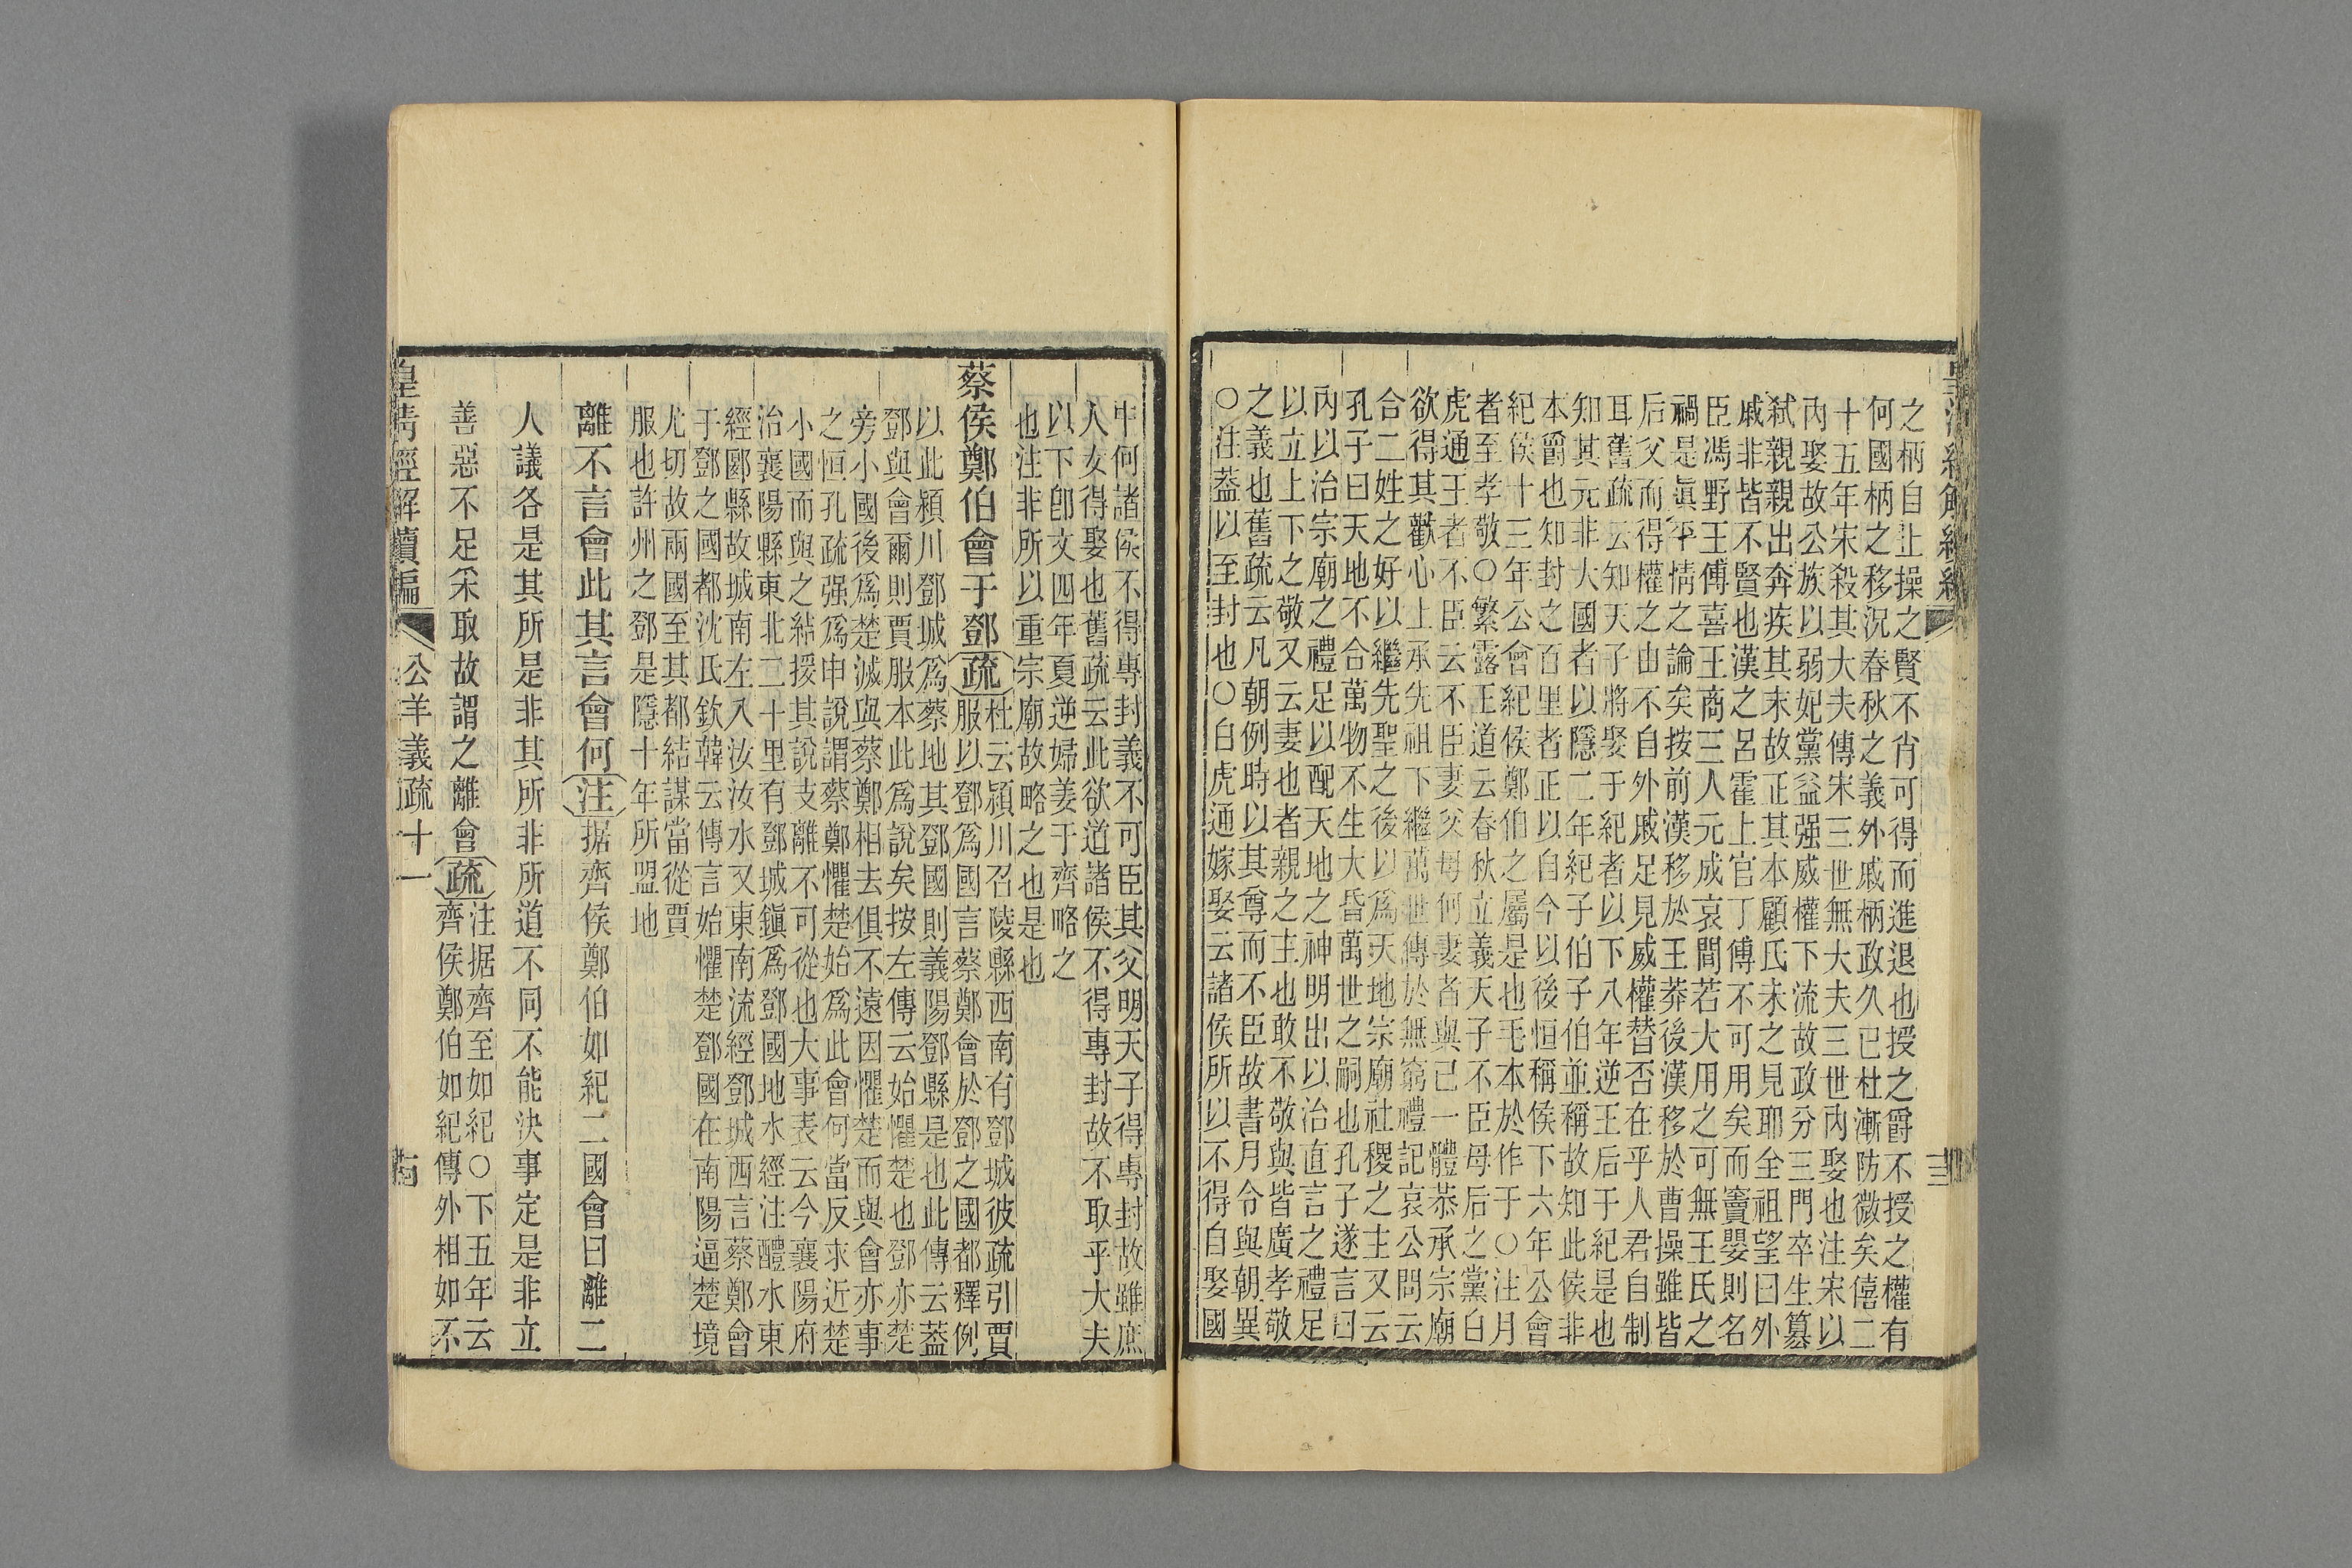 皇清經解續編
三
之柄自止操之賢不肖可得而進退也授之爵不授之權有
何國柄之移況春秋之義外戚柄政久已杜漸防微矣僖二
十五年宋殺其大夫傳宋三世無大夫三世內娶也注宋以
內娶故公族以弱妃黨益强威權下流故政分三門卒生篡
弒親親出奔疾其末故正其本顧氏未之見耶全祖望曰外
戚非皆不賢也漢之呂霍上官丁傅不可用矣而竇嬰則名
臣馮野王傅喜王商三人元成哀間若大用之可無王氏之
禍是眞平情之論矣按前漢移於王莽後漢移於曹操雖皆
后父而得權之由不自外戚足見威權替否在乎人君自制
耳舊疏云知天子將娶于紀者以下八年逆王后于紀是也
知其元非大國者以隱二年紀子伯子伯並稱故知此侯非
本爵也知封之百里者正以自今以後恒稱侯下六年公會
紀侯十三年公會紀侯鄭伯之屬是也毛本於作于○注月
者至孝敬○繁露王道云春秋立義天子不臣母后之黨白
虎通王者不臣云不臣妻父母何妻者與己一體恭承宗廟
欲得其歡心上承先祖下繼萬世傳於無窮禮記哀公問云
合二姓之好以繼先聖之後以爲天地宗廟社稷之主又云
孔子曰天地不合萬物不生大昏萬世之嗣也孔子遂言曰
內以治宗廟之禮足以配天地之神明出以治直言之禮足
以立上下之敬又云妻也者親之主也敢不敬與皆廣孝敬
之義也舊疏云凡朝例時以其尊而不臣故書月令與朝異
○注蓋以至封也○白虎通嫁娶云諸侯所以不得自娶國
中何諸侯不得專封義不可臣其父明天子得專封故雖庶
人女得娶也舊疏云此欲道諸侯不得專封故不取乎大夫
以下卽文四年夏逆婦姜于齊略之
也注非所以重宗廟故略之也是也
蔡侯鄭伯會于鄧疏杜云潁川召陵縣西南有鄧城彼疏引賈
服以鄧爲國言蔡鄭會於鄧之國都釋例
以此潁川鄧城爲蔡地其鄧國則義陽鄧縣是也此傳云蓋
鄧與會爾則賈服本此爲說矣按左傳云始懼楚也鄧亦楚
旁小國後爲楚滅與蔡鄭相去俱不遠因懼楚而與會亦事
之恒孔疏强爲申說謂蔡鄭懼楚始爲此會何當反求近楚
小國而與之結援其說支離不可從也大事表云今襄陽府
治襄陽縣東北二十里有鄧城鎭爲鄧國地水經注醴水東
經郾縣故城南左入汝汝水又東南流經鄧城西言蔡鄭會
于鄧之國都沈氏欽韓云傳言始懼楚鄧國在南陽逼楚境
尤切故兩國至其都結謀當從賈
服也許州之鄧是隱十年所盟地
離不言會此其言會何注据齊侯鄭伯如紀二國會曰離二
人議各是其所是非其所非所道不同不能決事定是非立
善惡不足采取故謂之離會疏注据齊至如紀○下五年云
齊侯鄭伯如紀傳外相如不
皇清經解續編
公羊義疏十一